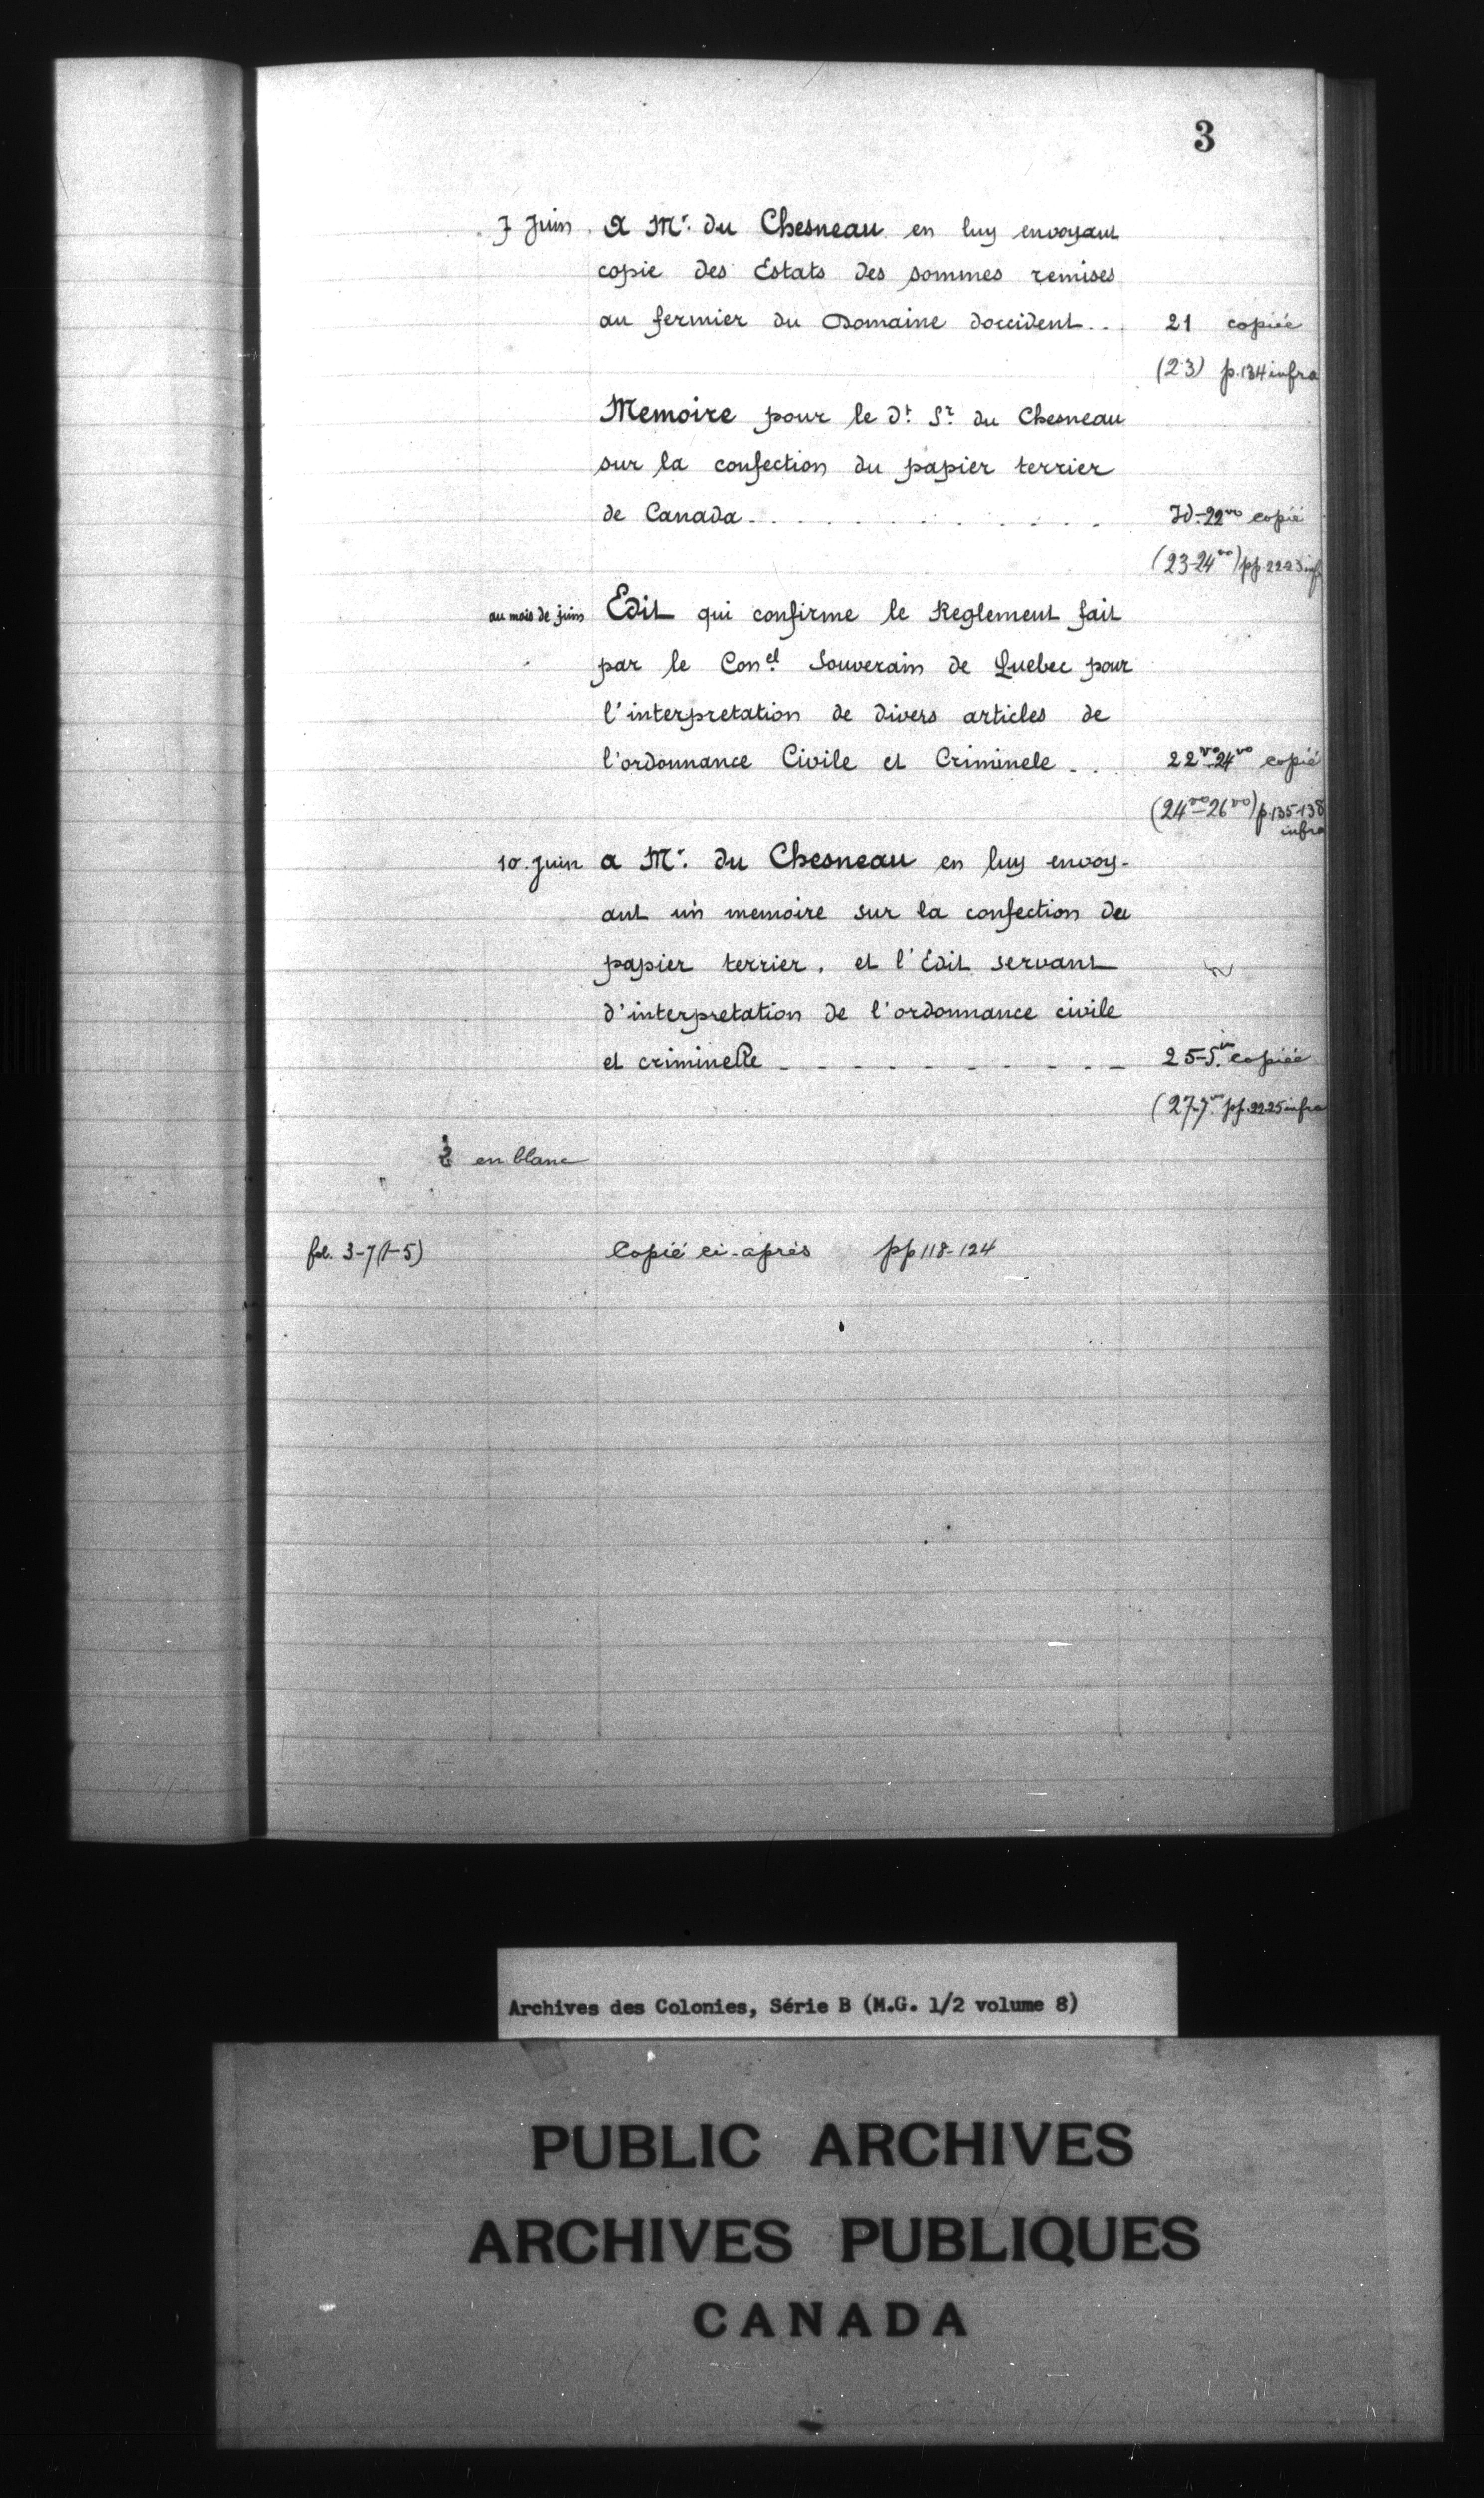 3
7 Juin. A Mr. du Chesneau en luy envoyant
copie des Estats des sommes remises
au fermier du Domaine doccident... 21 copiée
(23) p. 134 infra
Memoire pour le dt. Sr. du Chesneau
sur la confection du papier terrier
de Canada. . . . . . . . . . . . Id.-22vo copié
(23-24vo) pp. 22-23 inf
au mois de juin Edit qui confirme le Reglement fait
par le Conel Souverain de Quebec pour
l'interpretation de divers articles de
l'ordonnance Civile et Criminele - . . 22vo-24vo copié
(24vo-26vo) p. 135-138
infra
10. Juin a Mr. du Chesneau en luy envoy-
ant un memoire sur la confection du
papier terrier. et l'Edit servant
d'interpretation de l'ordonnance civile
et criminelle - - - - - - - - - - 25-5.vo copiée
(27-7.vo pp. 22-25 infra
2 en blanc
fol. 3-7 (1-5) Copié ci-après pp 118-124
Archives des Colonies, Série B (M.G. 1/2 volume 8)
PUBLIC ARCHIVES
ARCHIVES PUBLIQUES
CANADA